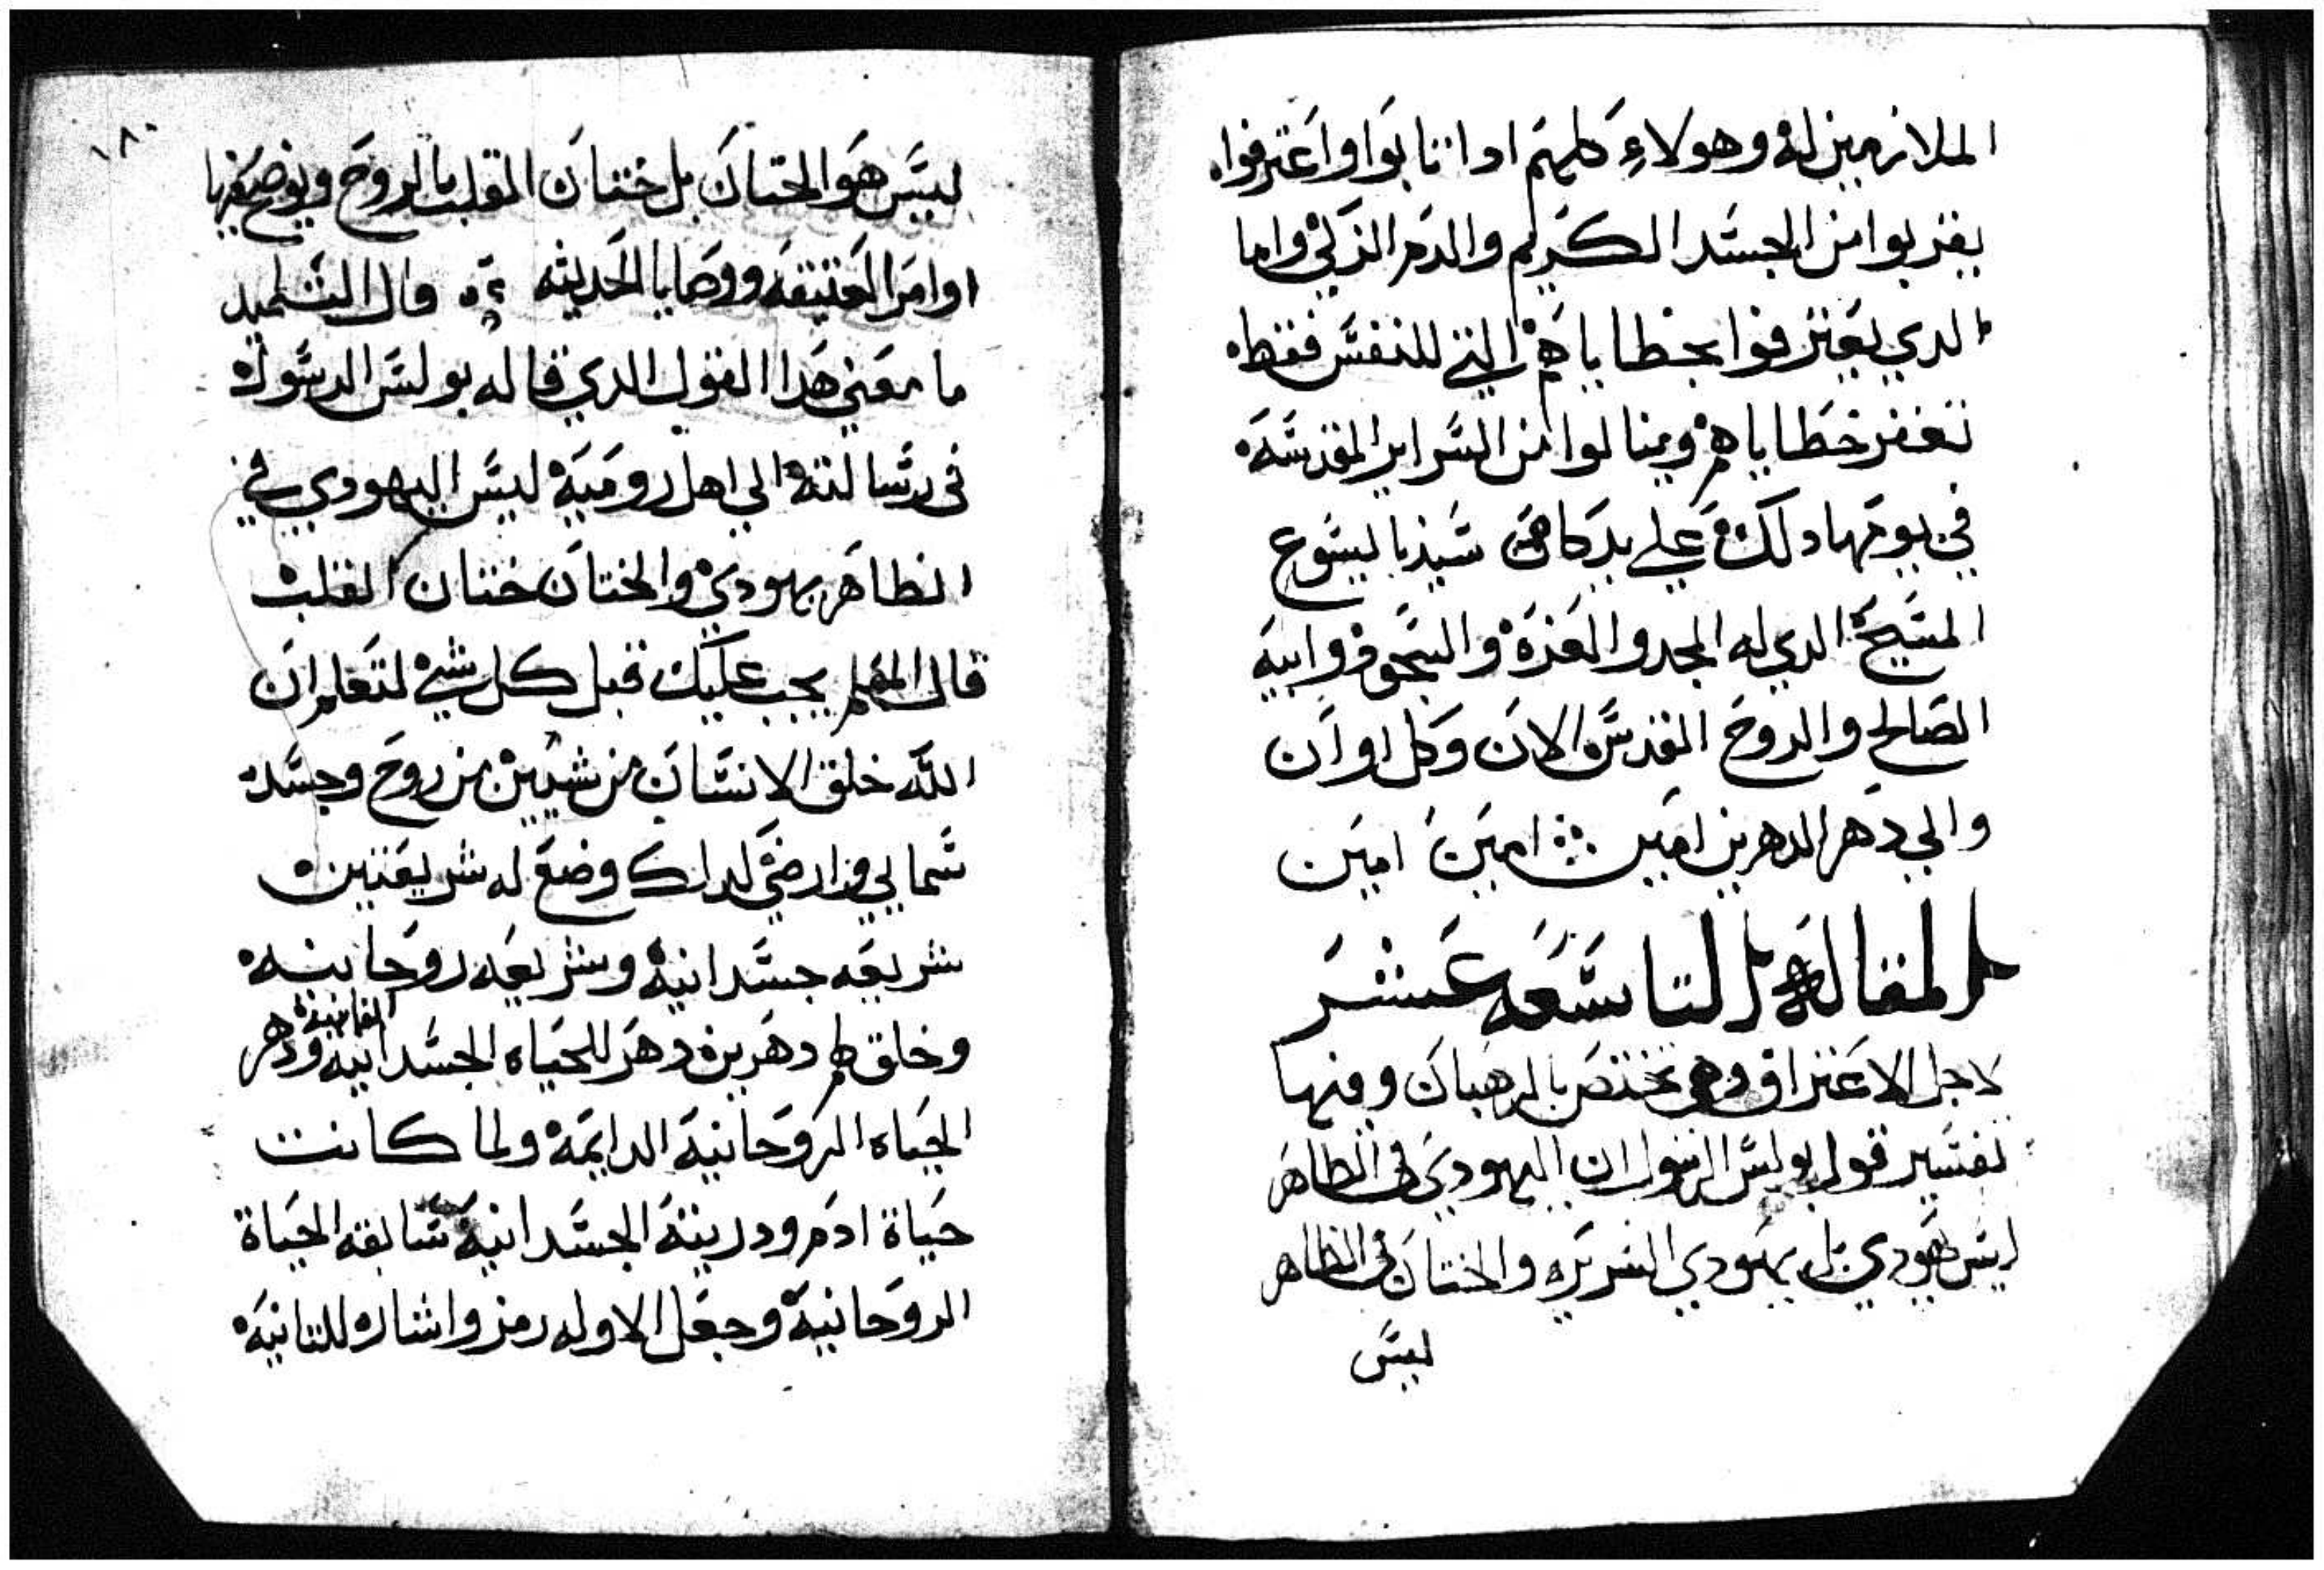 الملازمين له وهولاء كلهم ادا تابوا واعترفوا
يقربوا من الجسد الكريم والدم الزكي واما
الدي يعترفوا بخطاياهم التي للنفس فقط
تغفر خطاياهم وينالوا من السراير المقدسه
في يومها دلك علي يد كاهن سيدنا يسوع
المسيح الدي له المجد والعزة والسجود وابيه
الصالح والروح القدس الان وكل اوان
والي دهر الداهرين امين امين امين
المقالة التاسعه عشر
لاجل الاعتراف وهي تختص بالرهبان ومنها
تفسير قول بولس الرسول ان اليهودي في الظاهر
ليس يهودي بل يهودي السريره والختان في الظاهر
ليس
١٨٠
ليس هو الختان بل ختان القلب بالروح ويوضح فيها
اوامر العتيقه ووصايا الحديثه قال التلميد
ما معني هدا القول الدي قاله بولس الرسول
في رسالته الي اهل روميه ليس اليهودي في
الظاهر يهودي والختان ختان القلب
قال المعلم يجب عليك قبل كل شي لتعلم ان
الله خلق الانسان من شيين من روح وجسد
سمايي وارضي لدلك وضع له شريعتين
شريعه جسدانية وشريعه روحانيه
وخلق لهم دهرين دهر للحياه الجسدانية الفانية ودهر
الحياه الروحانية الدايمة ولما كانت
حياة ادم ودريته الجسدانية سابقه الحياة
الروحانية وجعل الاوله رمز واشاره للتانية